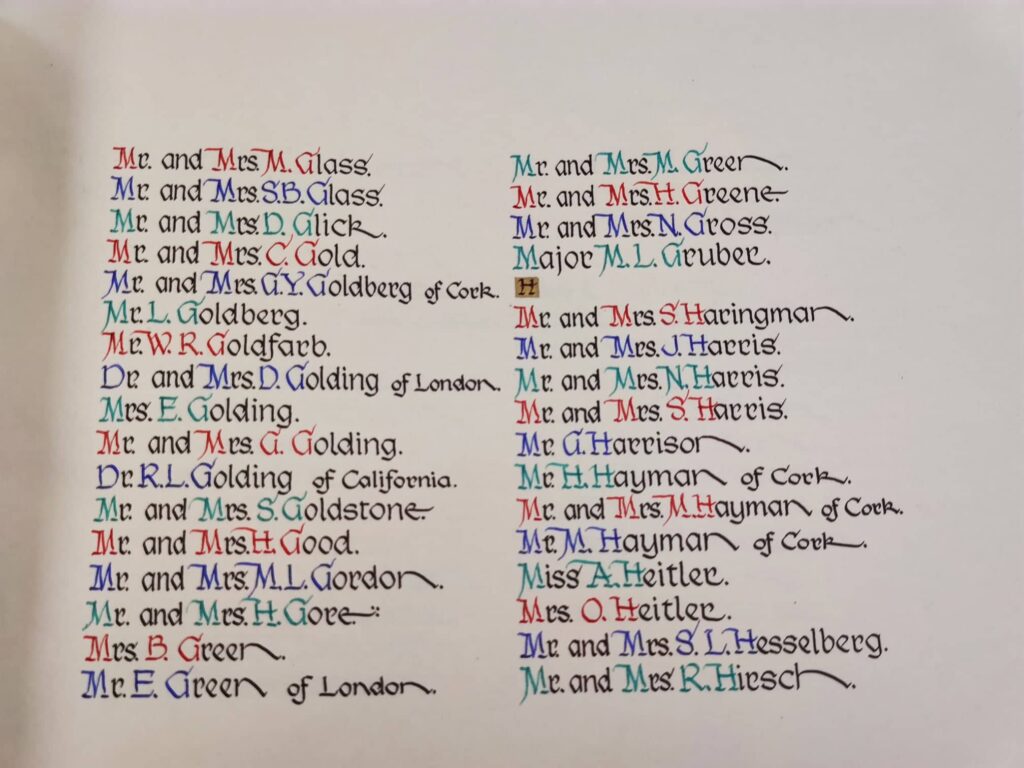 Mr. and Mrs. M. Glass.
Mr. and Mrs. S.B. Glass.
Mr. and Mrs. D. Glick.
Mr. and Mrs. C. Gold.
Mr. and Mrs. G.Y. Goldberg of Cork.
Mr. L. Goldberg.
Mr. W. R. Goldfarb.
Dr. and Mrs. D. Golding of London.
Mrs. E. Golding.
Mr. and Mrs. G. Golding.
Dr. R.L. Golding of California.
Mr. and Mrs. S. Goldstone
Mr. and Mrs. H. Good.
Mr. and Mrs. M.L. Gordon.
Mr. and Mrs. H. Gore
Mrs. B. Green.
Mr. E. Green of London.
Mr. and Mrs. M. Green.
Mr. and Mrs. H. Greene
Mr. and Mrs. N. Gross.
Major M. L. Gruber.
H
Mr. and Mrs. S. Haringman.
Mr. and Mrs. J. Harris.
Mr. and Mrs. N. Harris.
Mr. and Mrs. S. Harris.
Mr. G. Harrison.
Mr. H. Hayman of Cork.
Mr. and Mrs. M. Hayman of Cork.
Mr. M. Hayman of Cork.
Miss A. Heitler.
Mrs. O. Heitler.
Mr. and Mrs. S. L. Hesselberg.
Mr. and Mrs. R. Hirsch.